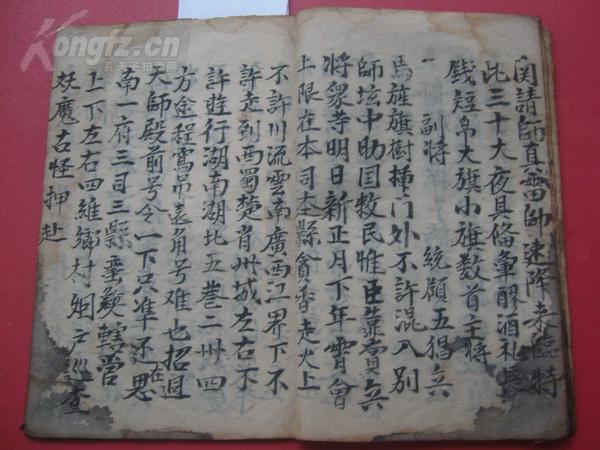 関請師真雷帥速降來臨特
此三十大夜具備葷酥酒礼長
錢短帛大旗小旗数首主將
一副將 統領五猖兵
馬旌旗樹㨂門外不許混入別
師坛中助国救民惟臣靠賣兵
將衆等明日新正月下年霄會
上限在本司本縣貪香走火上
不許川流雲南廣西江界下不
許走到西蜀楚省州城左右不
許遊行湖南湖北五巷二州四
方途程鴬吊遠角号难也招迴
天師殿前号令一下只准在不思
南一府三司三縣轄營
上下左右四維鄉村炯户巡查
妖魔古怪押赴
Kongfz.cn
孔夫子拍卖网